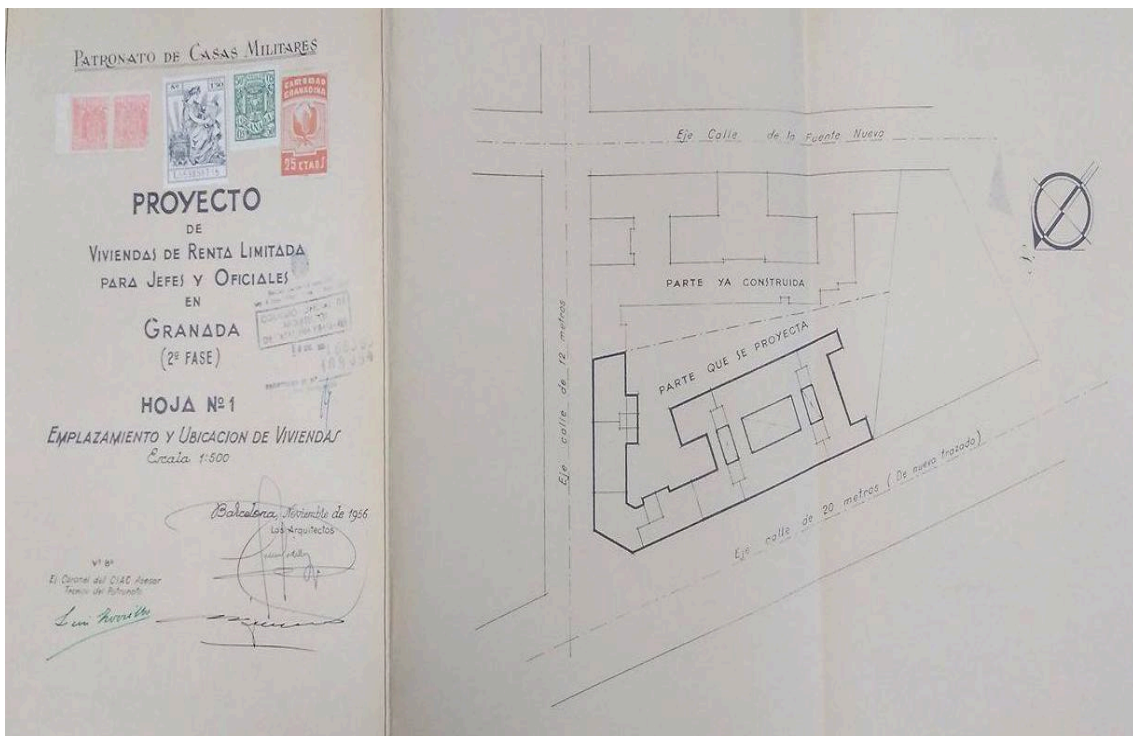 PATRONATO DE CASAS MILITARES
1'50
CARTUJA
GRANADINA
25 CTMS
PROYECTO
DE
VIVIENDAS DE RENTA LIMITADA
PARA JEFES Y OFICIALES
EN
GRANADA
(2ª FASE)
COLEGIO OFICIAL DE
HOJA Nº 1
EMPLAZAMIENTO Y UBICACION DE VIVIENDAS
Escala 1:500
Barcelona, Noviembre de 1956
Los Arquitectos
Vº Bº
El Coronel del CIAC Asesor
Tecnico del Patronato
Eje Calle de la Fuente Nueva
PARTE YA CONSTRUIDA
PARTE QUE SE PROYECTA
Eje calle de 12 metros
Eje calle de 20 metros (De nuevo trazado)